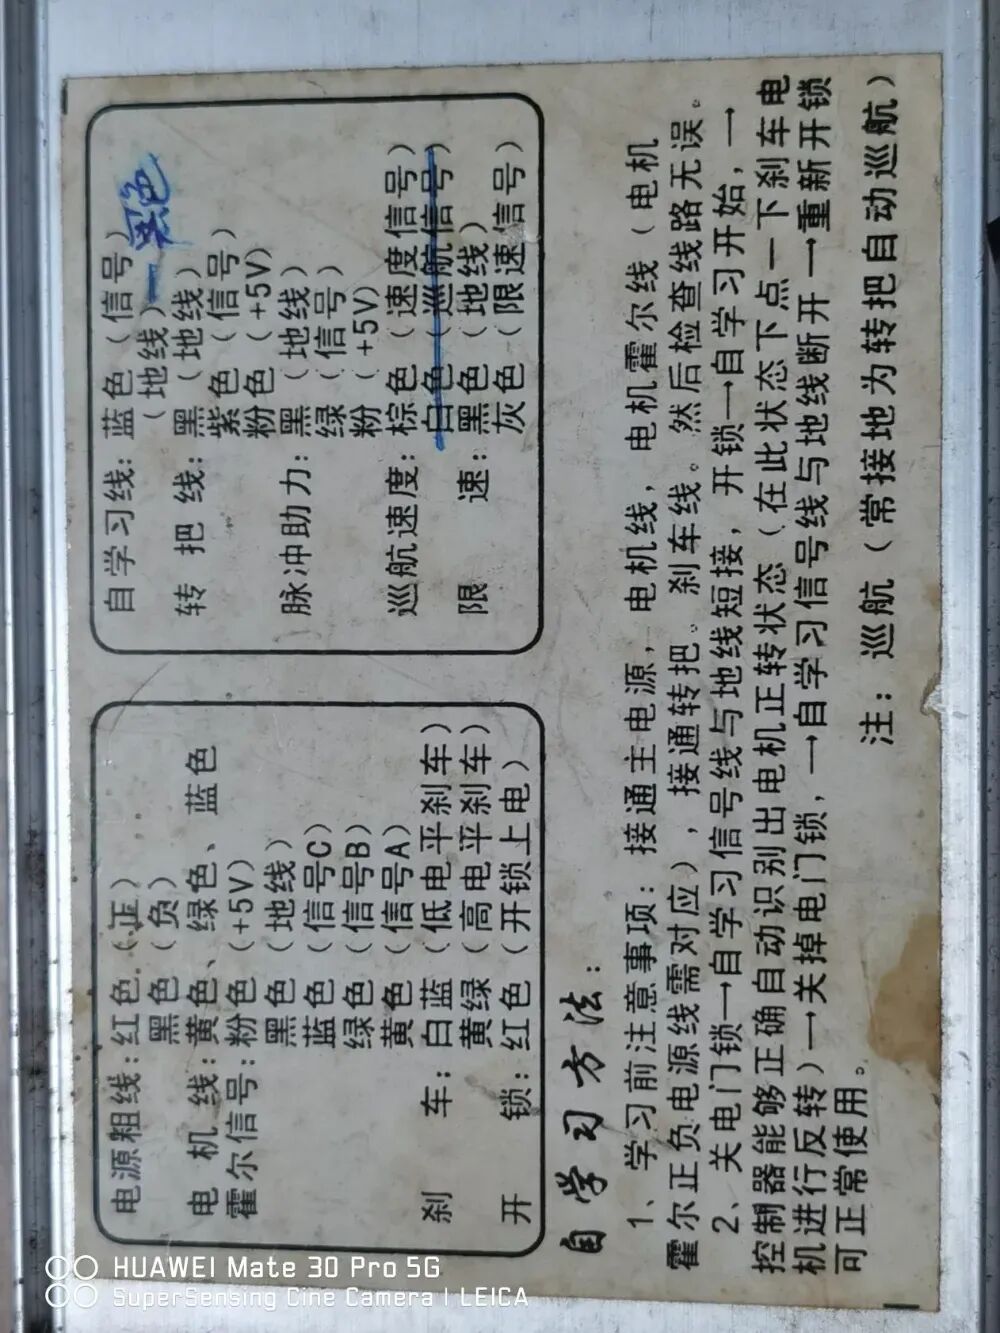 电源粗线：红色（正）
黑色（负）
电机线：黄色、绿色、蓝色
霍尔信号：粉色（+5V）
黑色（地线）
蓝色（信号C）
绿色（信号B）
黄色（信号A）
刹车：白蓝（低电平刹车）
黄绿（高电平刹车）
开锁：红色（开锁上电）
自学习线：蓝色（信号）
（地线）黑色
转把线：黑（地线）
紫色（信号）
粉色（+5V）
脉冲助力：黑（地线）
绿（信号）
粉（+5V）
巡航速度：棕色（速度信号）
白色（巡航信号）
限速：黑色（地线）
灰色（限速信号）
自学习方法：
1、学习前注意事项：接通主电源，电机线，电机霍尔线（电机
霍尔正负电源线需对应），接通转把。刹车线。然后检查线路无误。
2、关电门锁→自学习信号线与地线短接，开锁→自学习开始，→
控制器能够正确自动识别出电机正转状态（在此状态下点一下刹车电
机进行反转）→关掉电门锁，→自学习信号线与地线断开→重新开锁
可正常使用。
注：巡航（常接地为转把自动巡航）
HUAWEI Mate 30 Pro 5G
SuperSensing Cine Camera | LEICA